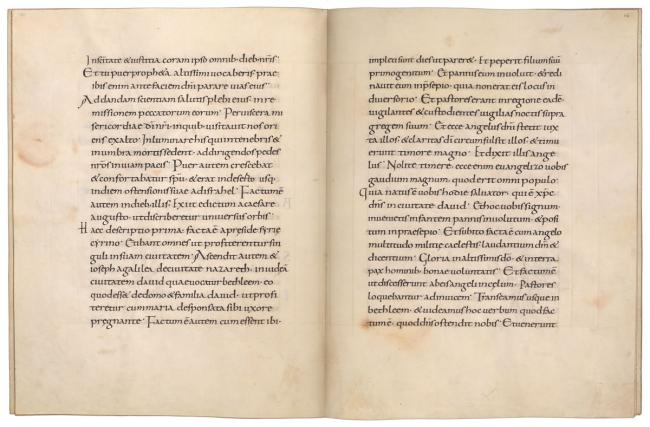 Inscitate & iustitia coram ipso omnib. dieb. nr̄is.
Et tu puer propheta altissimi vocaberis. prae
ibis enim ante faciem dn̄i parare vias eius.
Ad dandam scientiam salutis plebi eius. in re
missionem peccatorum eorum. Per viscera mi
sericordiae dī nr̄i. in quib. visitavit nos ori
ens ex alto. Inluminare his qui in tenebris &
in umbra mortis sedent. ad dirigendos pedes
nr̄os in viam pacis. Puer autem crescebat
& confortabatur sp̄u. & erat in desertis usq.
in diem ostensionis suae ad israhel. Factum ē
autem in dieb. illis. Exiit edictum a caesare
augusto. ut describeretur universus orbis.
Haec descriptio prima. facta ē a praeside syrie
cyrino. Et ibant omnes ut profiterentur sin
guli in suam civitatem. Ascendit autem &
ioseph a galilea. de civitate nazareth. in iudeā
civitatem david quae vocatur bethleem. eo
quod ess& de domo & familia david. ut profi
teretur cum maria desponsata sibi uxore
pregnante. Factum ē autem cum essent ibi.
impleti sunt dies ut parer&. Et peperit filium suū
primogenitum. Et pannis eum involvit. & recli
navit eum in presepio. quia non erat eis locus in
diversorio. Et pastores erant in regione eadē
vigilantes & custodientes vigilias noctis supra
gregem suum. Et ecce angelus dn̄i stetit iux
ta illos. & claritas dī circumfulsit illos. & timu
erunt timore magno. Et dixit illis ange
lus. Nolite timere. ecce enim euangelizo vobis
gaudium magnum. quod erit omni populo.
Quia natus ē vobis hodie salvator. qui ē xp̄c
dn̄s in civitate david. Et hoc vobis signum.
invenietis infantem pannis involutum. & posi
tum in praesepio. Et subito facta ē cum angelo
multitudo militiae caelestis. laudantium dm̄ &
dicentium. Gloria in altissimis dō. & in terra
pax hominib. bonae voluntatis. Et factum ē.
ut discesserunt ab eis angeli in celum. Pastores
loquebantur ad invicem. Transeamus usque in
bethleem. & videamus hoc verbum quod fac
tum ē. quod dn̄s ostendit nobis. Et venerunt